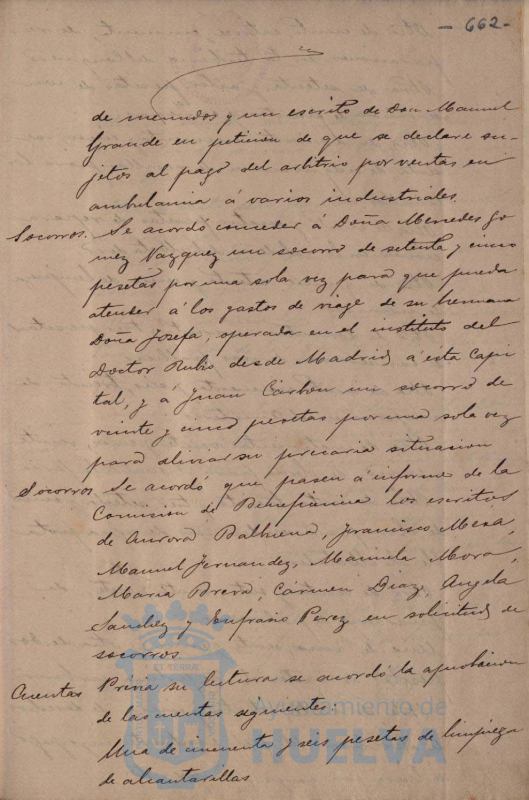 - 662 -
de menudos y un escrito de Don Manuel
Grande en peticion de que se declare su-
jetos al pago del arbitrio por ventas en
ambulancia á varios industriales.
Socorros. Se acordó conceder á Doña Mercedes Go
mez Vazquez un socorro de setenta y cinco
pesetas por una sola vez para que pueda
atender á los gastos de viage de su hermana
Doña Josefa, operada en el instituto del
Doctor Rubio desde Madrid á esta Capi
tal, y á Juan Carbon un socorro de
veinte y cinco pesetas por una sola vez
para aliviar su precaria situacion
Socorros Se acordó que pasen á informe de la
Comision de Beneficencia los escritos
de Aurora Balbuena, Francisco Meza,
Manuel Fernandez, Manuela Mora,
Maria Brera, Cármen Diaz, Angela
Sanchez y Eufrasio Perez en solicitud de
socorros.
Cuentas Prévia su lectura se acordó la aprobacion
de las cuentas siguientes:
Una de cincuenta y seis pesetas de limpieza
de alcantarillas
Ayuntamiento de
HUELVA